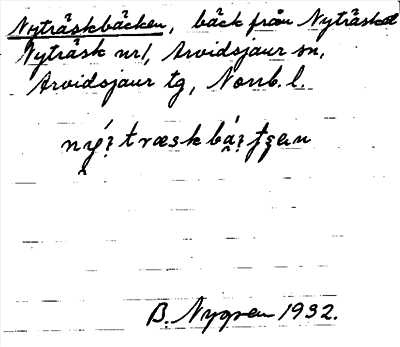 Nyträskbäcken, bäck från Nyträsket
Nyträsk nr 1, Arvidsjaur sn,
Arvidsjaur tg, Norrb. l.
B. Nygren 1932.